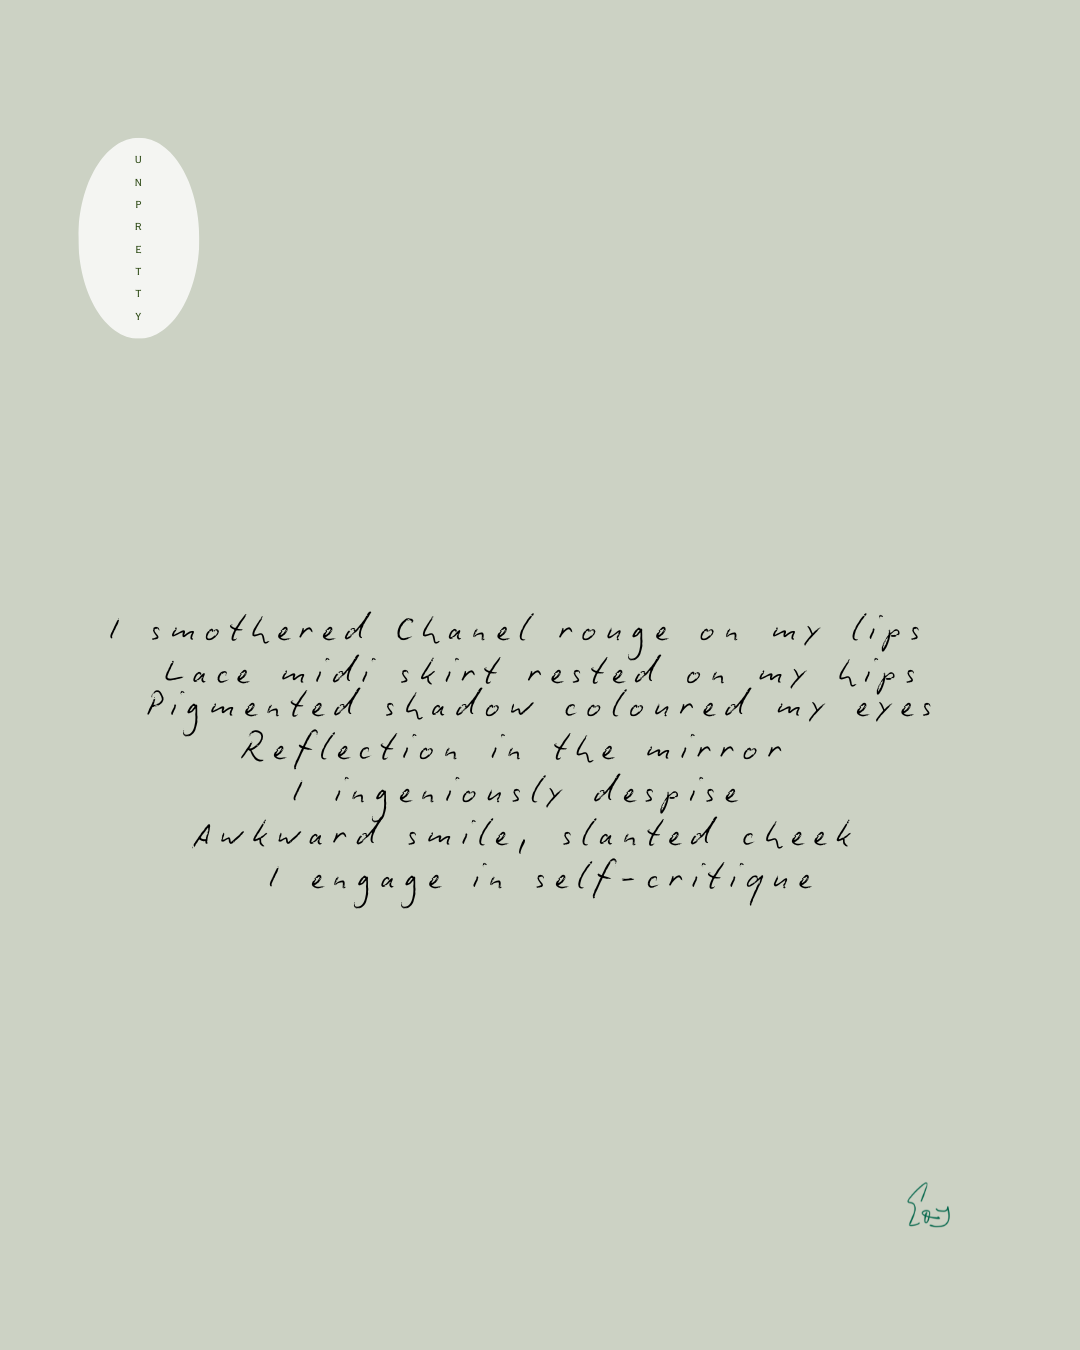 UNPRETTY
I smothered Chanel rouge on my lips
Lace midi skirt rested on my hips
Pigmented shadow coloured my eyes
Reflection in the mirror
I ingeniously despise
Awkward smile, slanted cheek
I engage in self-critique